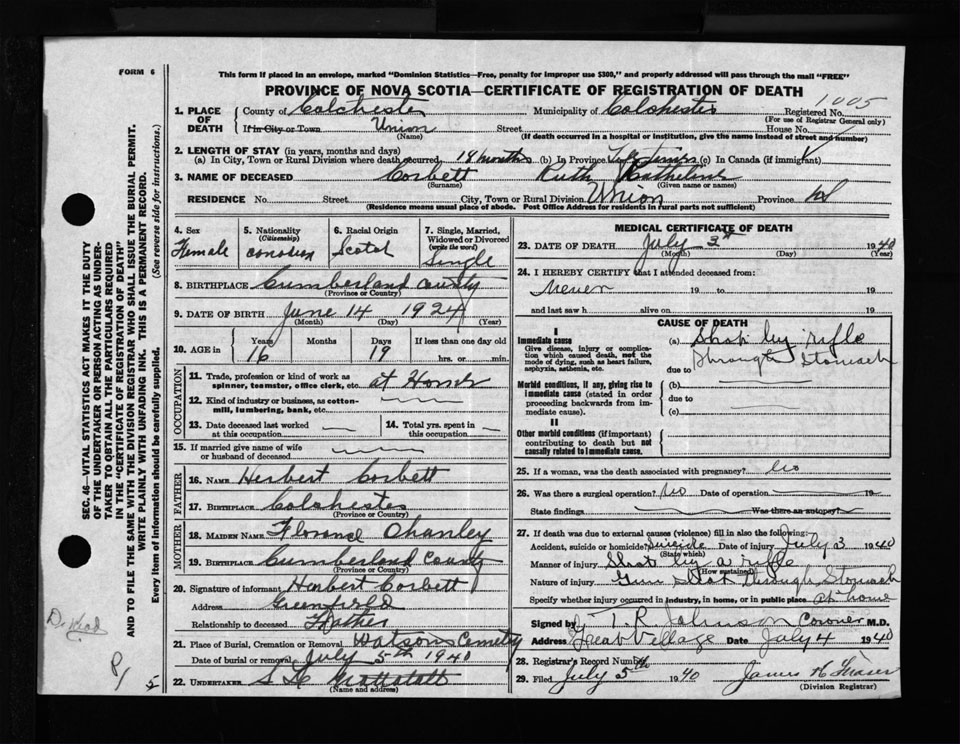 FORM 6
This form if placed in an envelope, marked "Dominion Statistics—Free, penalty for improper use $300," and properly addressed will pass through the mail "FREE"
PROVINCE OF NOVA SCOTIA—CERTIFICATE OF REGISTRATION OF DEATH
1005
1. PLACE OF DEATH
County of Colchester Municipality of Colchester Registered No.
(For use of Registrar General only)
If in City or Town Union Street House No.
(Name) (If death occurred in a hospital or institution, give the name instead of street and number)
2. LENGTH OF STAY (in years, months and days)
(a) In City, Town or Rural Division where death occurred, 18 months (b) In Province Life Time (c) In Canada (if immigrant)
3. NAME OF DECEASED Corbett Ruth Kathelene
(Surname) (Given name or names)
RESIDENCE No. Street City, Town or Rural Division Union Province
(Residence means usual place of abode. Post Office Address for residents in rural parts not sufficient)
4. Sex Female
5. Nationality (Citizenship)
6. Racial Origin Scotch
7. Single, Married, Widowed or Divorced (write the word) Single
8. BIRTHPLACE Cumberland County
(Province or Country)
9. DATE OF BIRTH June 14 1924
(Month) (Day) (Year)
10. AGE in Years 16 Months Days 19 If less than one day old hrs. or min.
OCCUPATION
11. Trade, profession or kind of work as spinner, teamster, office clerk, etc. at Home
12. Kind of industry or business, as cotton-mill, lumbering, bank, etc.
13. Date deceased last worked at this occupation
14. Total yrs. spent in this occupation
15. If married give name of wife or husband of deceased
FATHER
16. NAME Herbert Corbett
17. BIRTHPLACE Colchester
(Province or Country)
MOTHER
18. MAIDEN NAME Florence
19. BIRTHPLACE Cumberland County
(Province or Country)
20. Signature of informant Herbert Corbett
Address Greenfield
Relationship to deceased Father
21. Place of Burial, Cremation or Removal Watson Cemetry
Date of burial or removal July 5th 1940
22. UNDERTAKER
(Name and address)
MEDICAL CERTIFICATE OF DEATH
23. DATE OF DEATH July 3rd 1940
(Month) (Day) (Year)
24. I HEREBY CERTIFY that I attended deceased from:
Never 19 to 19
and last saw h alive on 19
CAUSE OF DEATH
I
Immediate cause
Give disease, injury or complication which caused death, not the mode of dying, such as heart failure, asphyxia, asthenia, etc.
(a) Shot by rifle
due to Through Stomach
Morbid conditions, if any, giving rise to immediate cause (stated in order proceeding backwards from immediate cause).
(b)
due to
(c)
II
Other morbid conditions (if important) contributing to death but not causally related to immediate cause.
25. If a woman, was the death associated with pregnancy? No
26. Was there a surgical operation? No Date of operation 19
State findings Was there an autopsy?
27. If death was due to external causes (violence) fill in also the following:
Accident, suicide or homicide? Suicide Date of injury July 3 1940
(State which)
Manner of injury Shot by a rifle
(How sustained)
Nature of injury Gun Shot Through Stomach
Specify whether injury occurred in industry, in home, or in public place at home
Signed by T. R. Johnson Coroner M.D.
Address Great Village Date July 4 1940
28. Registrar's Record Number
29. Filed July 5th 1940 James H Fraser
(Division Registrar)
SEC. 46—VITAL STATISTICS ACT MAKES IT THE DUTY
OF THE UNDERTAKER OR PERSON ACTING AS UNDER-
TAKER TO OBTAIN ALL THE PARTICULARS REQUIRED
IN THE "CERTIFICATE OF REGISTRATION OF DEATH"
AND TO FILE THE SAME WITH THE DIVISION REGISTRAR WHO SHALL ISSUE THE BURIAL PERMIT.
WRITE PLAINLY WITH UNFADING INK. THIS IS A PERMANENT RECORD.
Every item of information should be carefully supplied. (See reverse side for instructions.)